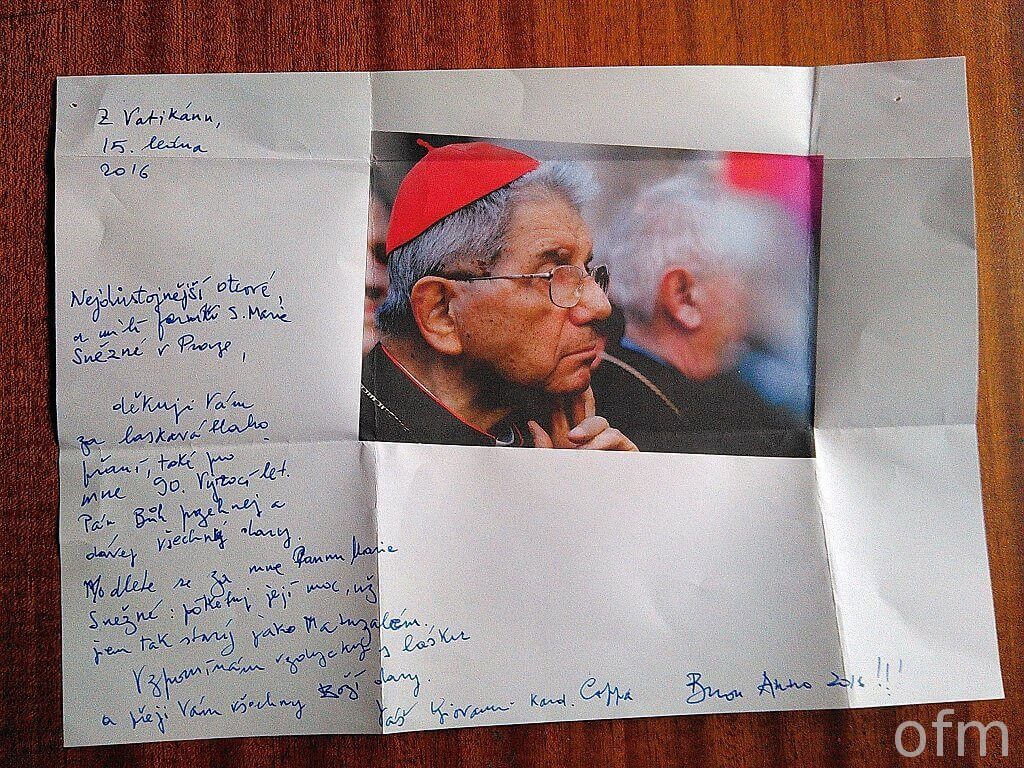 Z Vatikánu,
15. ledna
2016
Nejdůstojnější otcové,
a milí farníků S. Marie
Sněžné v Praze,
děkuji Vám
za laskavá blaho
přání, také pro
mne 90. Výročí let.
Pán Bůh požehnej a
dávej všechny dary.
Modlete se za mne Pannu Marie
Sněžné: potřebuj její moc, už
jsem tak starý jako Matuzalém.
Vzpomínám vždycky s lásku
a přeji Vám všechny Boží dary.
Váš Giovanni kard. Coppa Buon Anno 2016 !!!
ofm